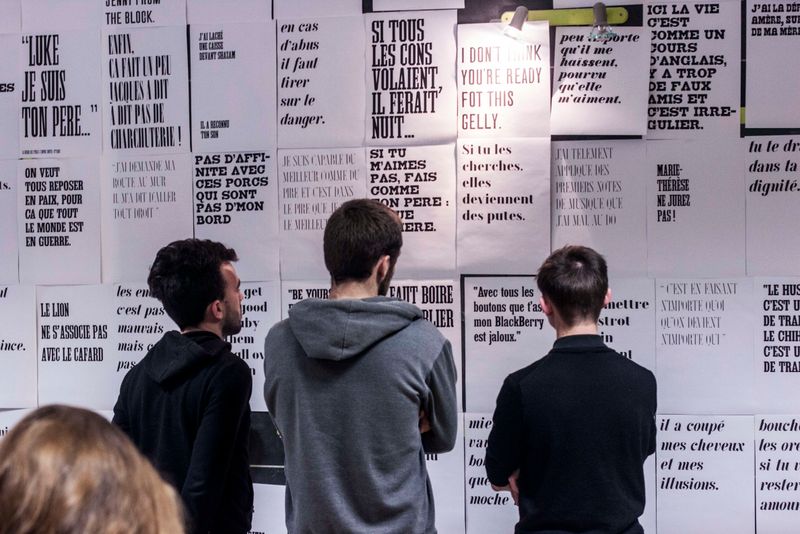 FROM
THE BLOCK.
J'AI LACHÉ
UNE CAISSE
DEVANT SHAZAM
IL A RECONNU
TON SON
en cas
d'abus
il faut
tirer
sur le
danger.
SI TOUS
LES CONS
VOLAIENT,
IL FERAIT
NUIT...
I DON'T THINK
YOU'RE READY
FOT THIS
GELLY.
peu importe
qu'il me
haïssent,
pourvu
qu'elle
m'aiment.
ICI LA VIE
C'EST
COMME UN
COURS
D'ANGLAIS,
Y A TROP
DE FAUX
AMIS ET
C'EST IRRE-
GULIER.
J'AI LA
AMÈRE, SU
DE MA MÈRE
"LUKE
JE SUIS
TON PERE..."
ENFIN,
CA FAIT UN PEU
JACQUES A DIT
À DIT PAS DE
CHARCUTERIE!
ON VEUT
TOUS REPOSER
EN PAIX, POUR
ÇA QUE TOUT
LE MONDE
EST EN GUERRE.
"J'AI DEMANDÉ MA
ROUTE AU MUR
IL M'A DIT D'ALLER
TOUT DROIT"
PAS D'AFFI-
NITE AVEC
CES PORCS
QUI SONT
PAS D'MON
BORD
JE SUIS CAPABLE DU
MEILLEUR COMME DU
PIRE ET C'EST DANS
LE PIRE QUE JE
LE MEILLEUR
SI TU
M'AIMES PAS,
FAIS COMME
MON PERE :
Si tu les
cherches,
elles
deviennent
des putes.
J'AI TELEMENT
APPLIQUE DES
PREMIERS NOTES
DE MUSIQUE QUE
J'AI MAL AU DO
MARIE-
THÉRÈSE
NE JUREZ
PAS !
tu le dr
dans ta
dignité.
LE LION
NE S'ASSOCIE PAS
AVEC LE CAFARD
les en
c'est pas
mauvais
mais c'est
pas
get
"BE YOURS
FAUT BOIRE
"Avec tous les
boutons que t'as
mon BlackBerry
est jaloux."
mettre
"C'EST EN FAISANT
N'IMPORTE QUOI
QU'ON DEVIENT
N'IMPORTE QUI"
"LE HUS
C'EST U
DE TRA
LE CHIH
C'EST U
DE TRA
mie
moche
il a coupé
mes cheveux
et mes
illusions.
bouche
les ore
si tu v
rester
amour